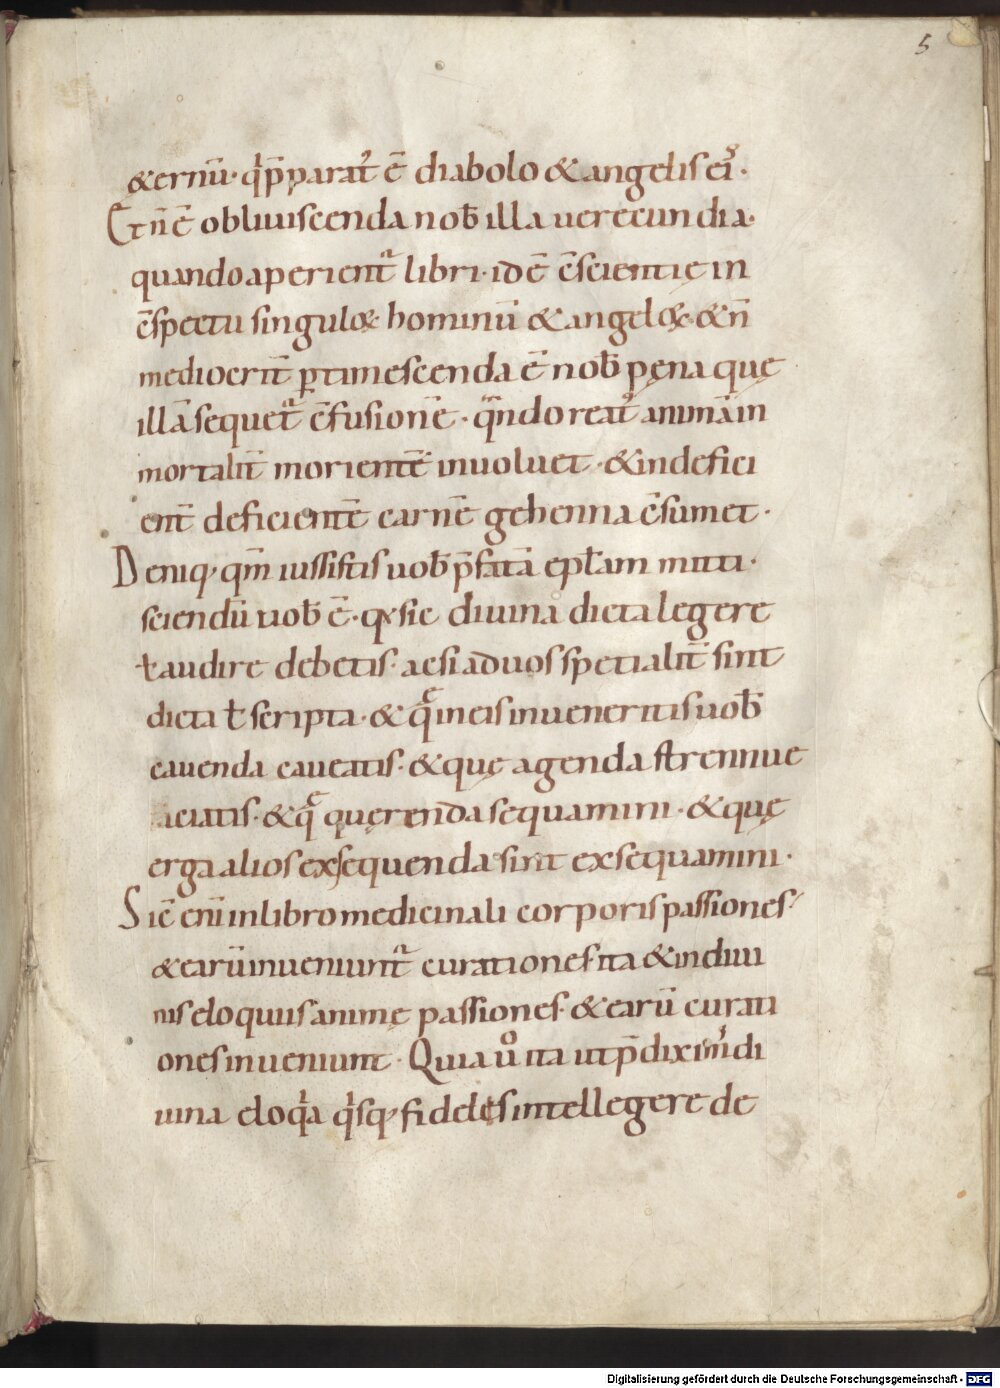 5
&ernū· q̇ p̄paratꝰ ē diabolo & angelis eiꝰ·
Et n̄ ē obliuiscenda nob̄ illa uerecundia·
quando aperient᷑ libri· id ē c̄scientię in
c̄spectu singuloꝝ hominū & angeloꝝ· & n̄
mediocrit̄ ꝑtimescenda ē nob̄ pęna quę
illā sequet᷑ c̄fusionē· qn̄do reatꝰ animā in
mortalit̄ morientē inuoluet· & indefici
ent̄ deficientē carnē gehenna c̄sumet·
Deniq· qm̄ iussistis uob̄ p̄fatā epłam mitti·
sciendū uob̄ ē· qđ sic diuina dicta legere
ł audire debetis· ac si ad uos specialit̄ sint
dicta ł scripta· & q̄ in eis inueneritis uob̄
cauenda caueatis· & quę agenda strennue
aciatis· & q̄ quęrenda sequamini· & quę
erga alios exsequenda sint exsequamini·
Sic̄ eni in libro medicinali corporis passiones·
& earū inueniunt᷑ curationes ita & in diui
nis eloquiis animę passiones· & earū curati
ones inueniunt· Quia ů ita ut p̄diximꝰ di
uina eloq̇a q̇sq· fideles intellegere de
Digitalisierung gefördert durch die Deutsche Forschungsgemeinschaft - DFG